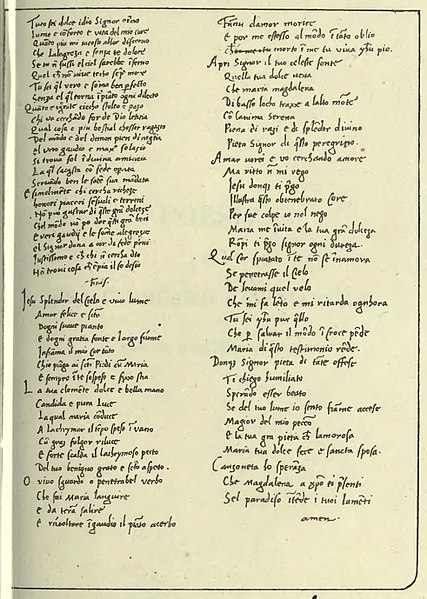 Tu sei dolce idio Signor
Lume e cōforto e vita del mio core
Quāto piu mi acosto allor discerno
Che lalegreza e senza te dolore
Se tu nō fussi el ciel sarebbe īferno
Quel chi nō vive techo sēpre more
Tu sei ql vero e sōmo ben pfecto
Senza el ql torna ī piāto ogni dilecto
Quāto e ignāte ciecho stolto e pazo
Chi va cerchādo for de Dio letitia
Qual cosa e piu bestial chesser ragazo
Del mōdo e del demon pien di
al vero gaudio e max° solazo
Si trova sol ī divina amicitia
La ql sacqsta cō fede
Servādo ben le sōte sua
E similmēte chi cercha richeze
honori piaceri tesauli e terreni
Nō pvo gustar di qste grā dolceze
Chel mōdo nō po dar qsti grā beni
e veri gaudij e le sōme alegreze
el Signor dona a cor da sé pieni
Iustissomo e ch chi nō cercha dio
Nō trovi cosa ch ēpia il so desio
finis
Iesu Splendor del cielo e vivo lume
Amor felice e scto
Dogni suave pianto
e dogni grata fonte e largo fiume
Infiāma il mio cor
Chio piāga ai scti piedi cū Maria
e sempre ī te sospeso e fixo stia
La tua clemēte dolce e bella mano
Candida e pura luce
La qual maria cōduce
A lachrymar il tēpo speso ī vano
Cū grā fulgor riluce
e forte scalda il lachrymoso petto
Del tuo benigno grato e scto aspeto.
O vivo sguardo o penetrabel verbo
Che fai Maria languire
e da terra salire
e ricoltore ī gaudio il piāto acerbo
Fami damor morire
E por me estesso al mōdo ī scāto oblio
morto ī me tu viva yhu pio.
Apri Signor il tuo celeste fonte
Quella tua dolce vena
Che maria magdalena
Di basso locho traxe a lalto mōte
Cō lanima serena
Piena di razi e di splēdor divino
Pieta Signor di qsto peregrino.
Amar vorei e vo cerchando amore
Ma rittō nī mi vego
Iesu donqs ti pgo
Illustra qsto obtenebrato core
Per sue colpe io nol nego
Maria me īvita e la tua grā dolceza
Rōpi ti pgo signor ogni dureza.
Qual cor spietato ī te nō se īnamora
Se penetrasse il cielo
De levami quel velo
Che mi fa lēto e mi ritarda ognhora
Tu sei yhu pur qllo
Che p salvar il mōdo ī croce pēde
Maria di qsto testimonio rēde.
Donqs Signor pieta di tāte offese
Ti chiego humiliato
Sperādo esser beato
Se del tuo lume io sento fiāme accese
Magior del mio pecco
e la tua grā pieta lamorosa
Maria tua dolce serva e sancta sposa.
Canzoneta ho sperāza
Che Magdalena a xpo ti psenti
Nel paradiso ītēde i tuoi lamēti
amen.